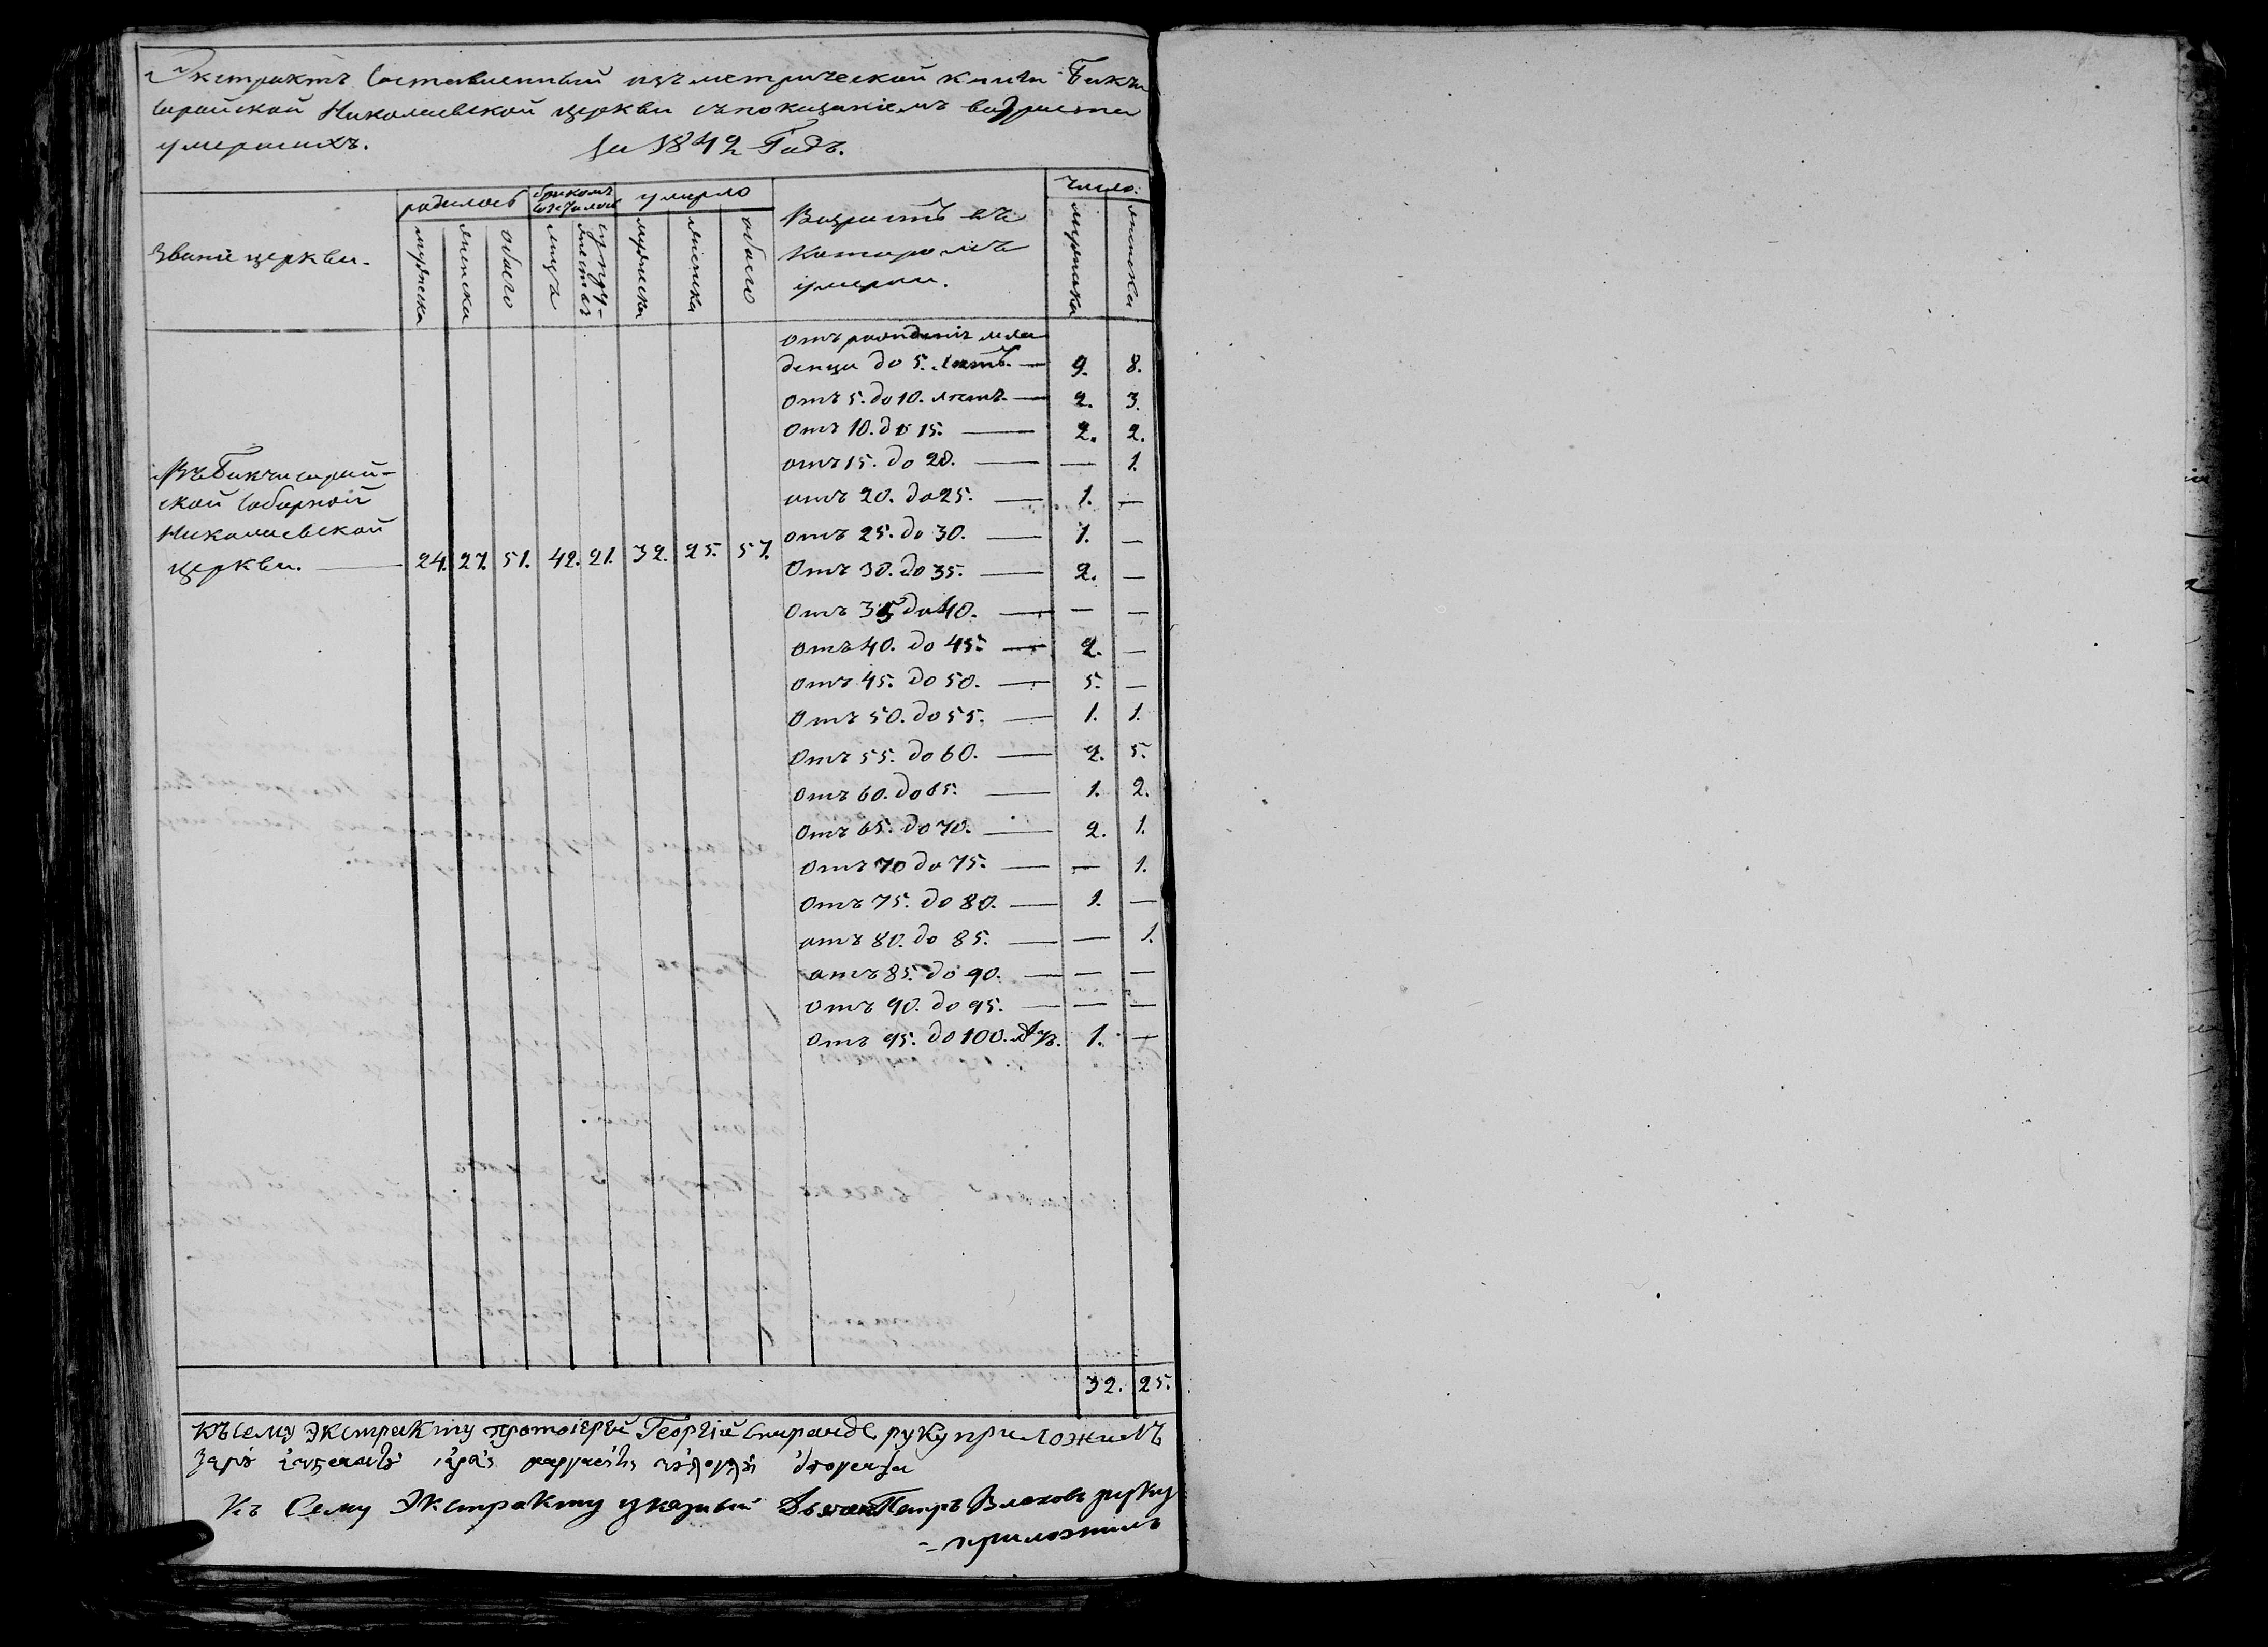 Экстрактъ составленный изъ метрической книги Бахчи
сарайской Николаевской церкви съ показаніемъ возраста
умершихъ. За 1842 Годъ.
Званіе церкви.
родилось
бракомъ сочеталось
умерло
Возрастъ въ
которомъ
умерли.
число.
мужеска
женска
обоего
лицъ
супру-
жествъ
мужеска
женска
обоего
мужеска
женска
Въ Бахчисарай-
ской Соборной
Николаевской
церкви. — 24. 27. 51. 42. 21. 32. 25. 57.
отъ рожденія мла
денца до 5. лѣтъ. — 9. 8.
отъ 5. до 10. лѣтъ. — 2. 3.
отъ 10. до 15. — 2. 2.
отъ 15. до 20. — — 1.
отъ 20. до 25. — 1. —
отъ 25. до 30. — 1. —
отъ 30. до 35. — 2. —
отъ 35 до 40. — — —
отъ 40. до 45. — 2. —
отъ 45. до 50. — 5. —
отъ 50. до 55. — 1. 1.
отъ 55. до 60. — 2. 5.
отъ 60. до 65. — 1. 2.
отъ 65. до 70. — 2. 1.
отъ 70 до 75. — — 1.
отъ 75. до 80. — 1. —
отъ 80. до 85. — — 1.
отъ 85. до 90. — — —
отъ 90. до 95. — — —
отъ 95. до 100. 1. —
32. 25.
Къ сему экстракту протоіерей Георгій Спиранде руку приложилъ
Къ Сему Экстракту указный Дьячекъ Петръ Влаховъ руку
- приложилъ